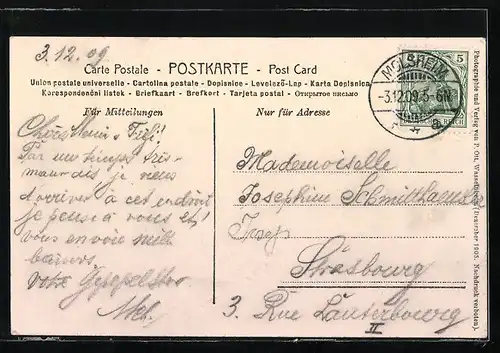 3.12.09
Carte Postale - POSTKARTE - Post Card
Union postale universelle - Cartolina postale - Dopisnice - Levelező-Lap - Karta Dopisnica
Korespondenční listek - Briefkaart - Brefkort - Tarjeta postal - Открытое письмо
Für Mitteilungen
Nur für Adresse
MOLSHEIM
-3.12.09.5-6N
a
5
REICH
Photographie und Verlag von P. Ott,
(Dezember 1905. Nachdruck verboten.)
Chère
Par un temps très
mauvais je
arriver à cet endroit
je pense à vous et
vous envoie mille
baisers
votre
Mademoiselle
Josephine
Strasbourg
3. Rue Lauterbourg
II